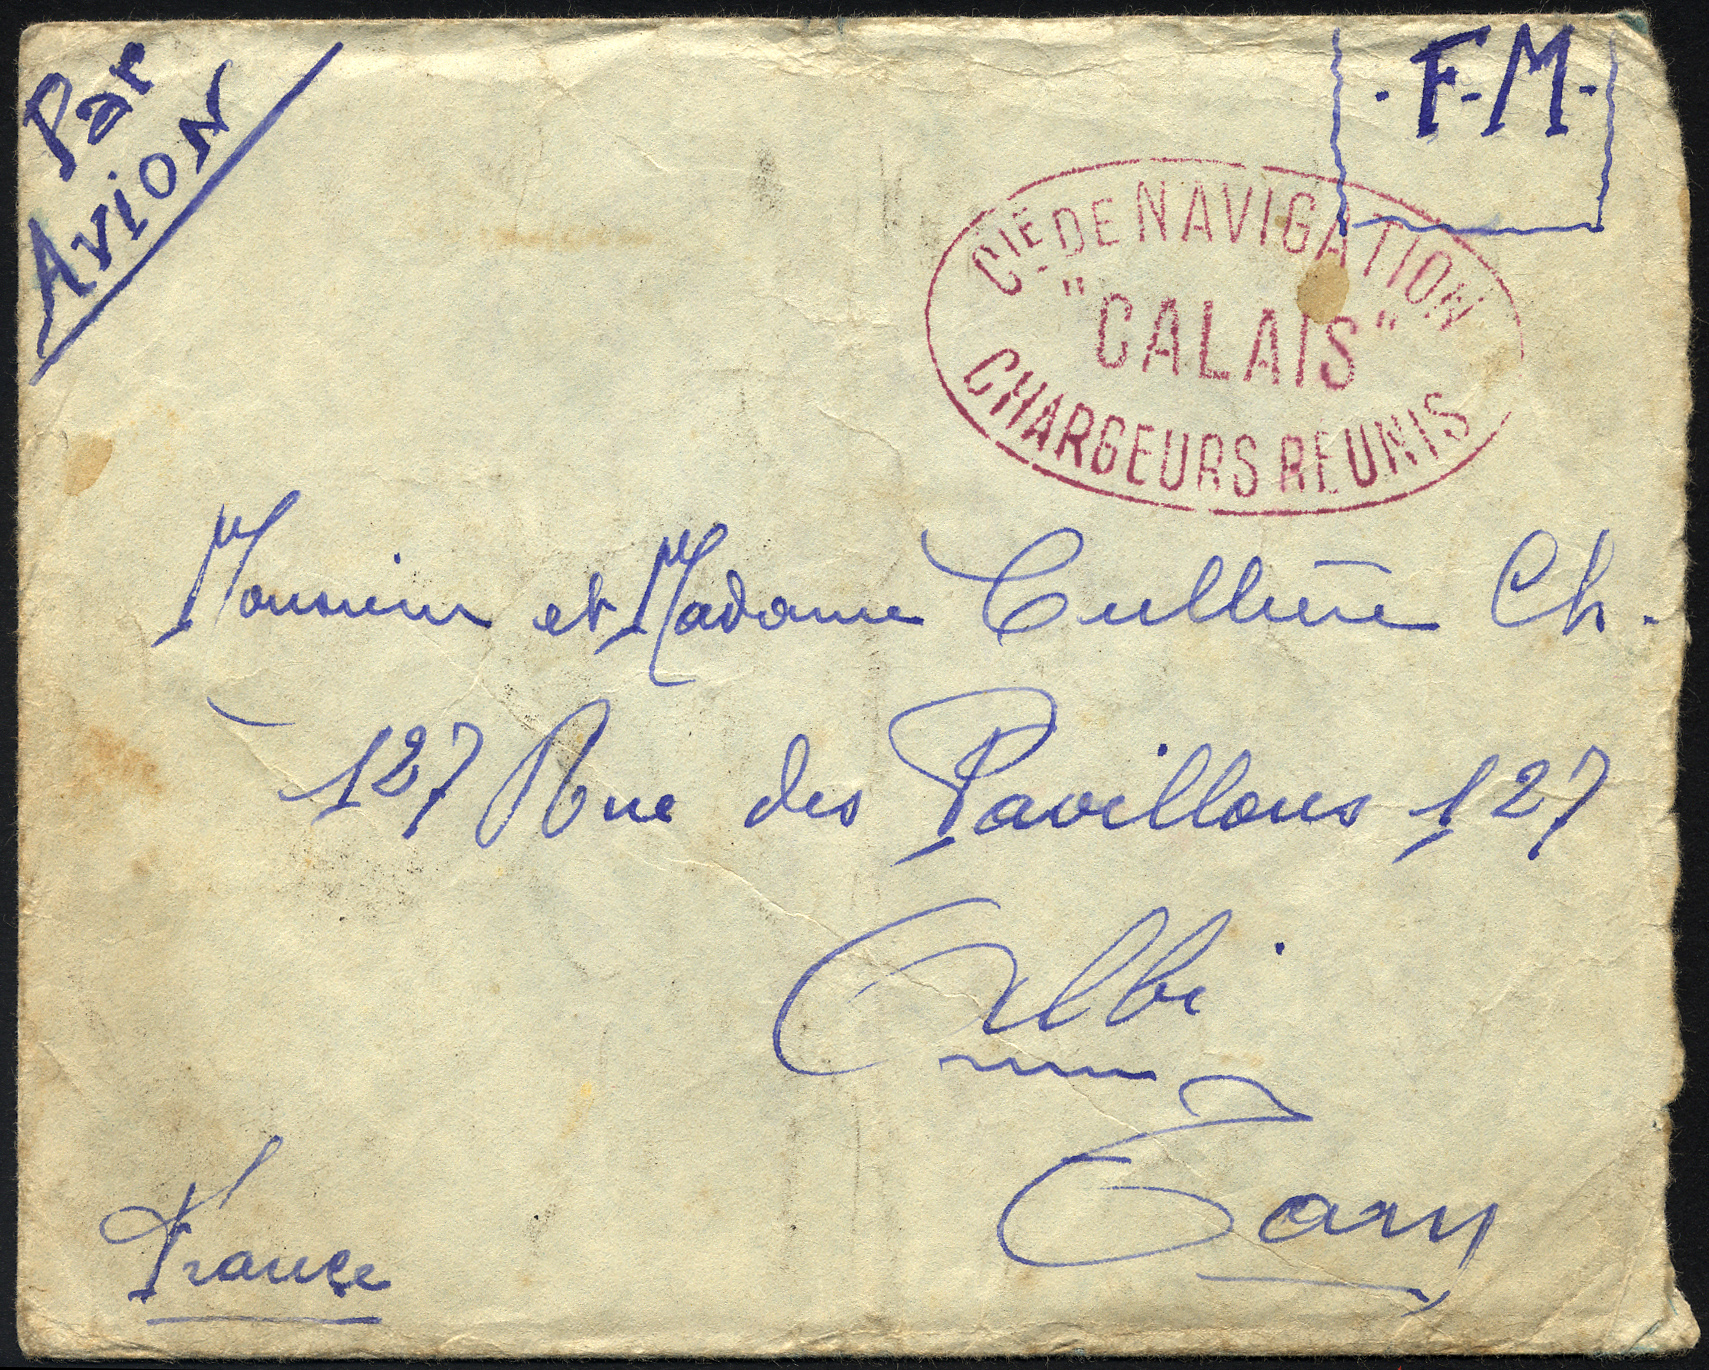 Par
Avion
. F.M.
Cie. DE NAVIGATION
"CALAIS"
CHARGEURS REUNIS
Monsieur et Madame Cullière Ch.
127 Rue des Pavillons 127
Albi
Tarn
France